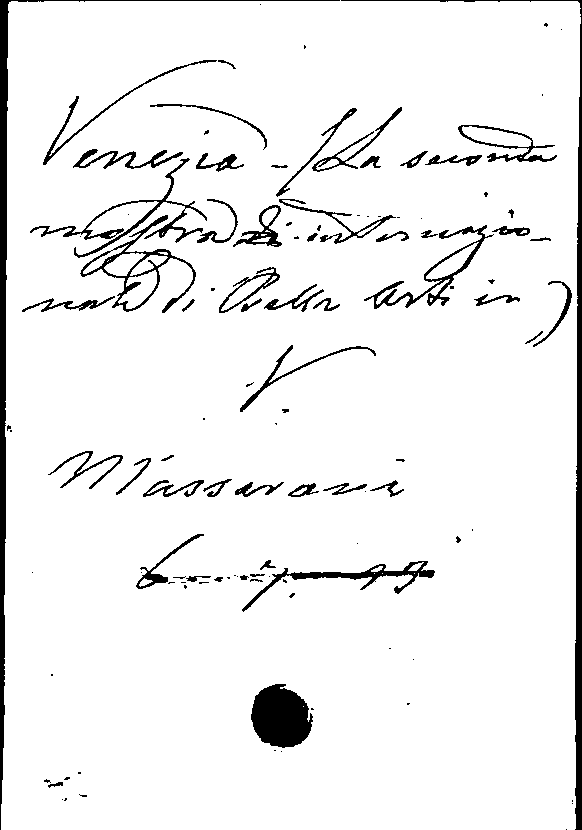 Venezia - (La seconda
mostra di internazio-
nale di Belle Arti in)
V.
Massarani